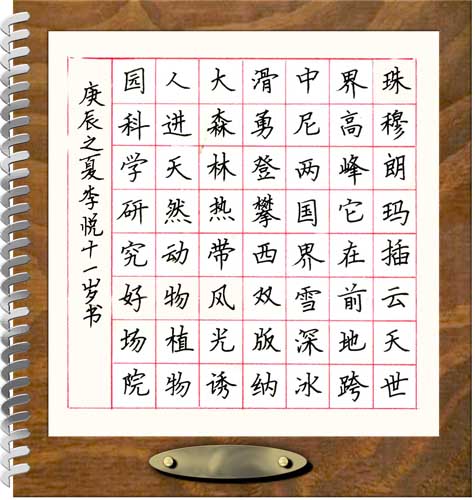 珠穆朗玛插云天世
界高峰它在前地跨
中尼两国界雪深冰
滑勇登攀西双版纳
大森林热带风光诱
人进天然动物植物
园科学研究好场院
庚辰之夏李悦十一岁书